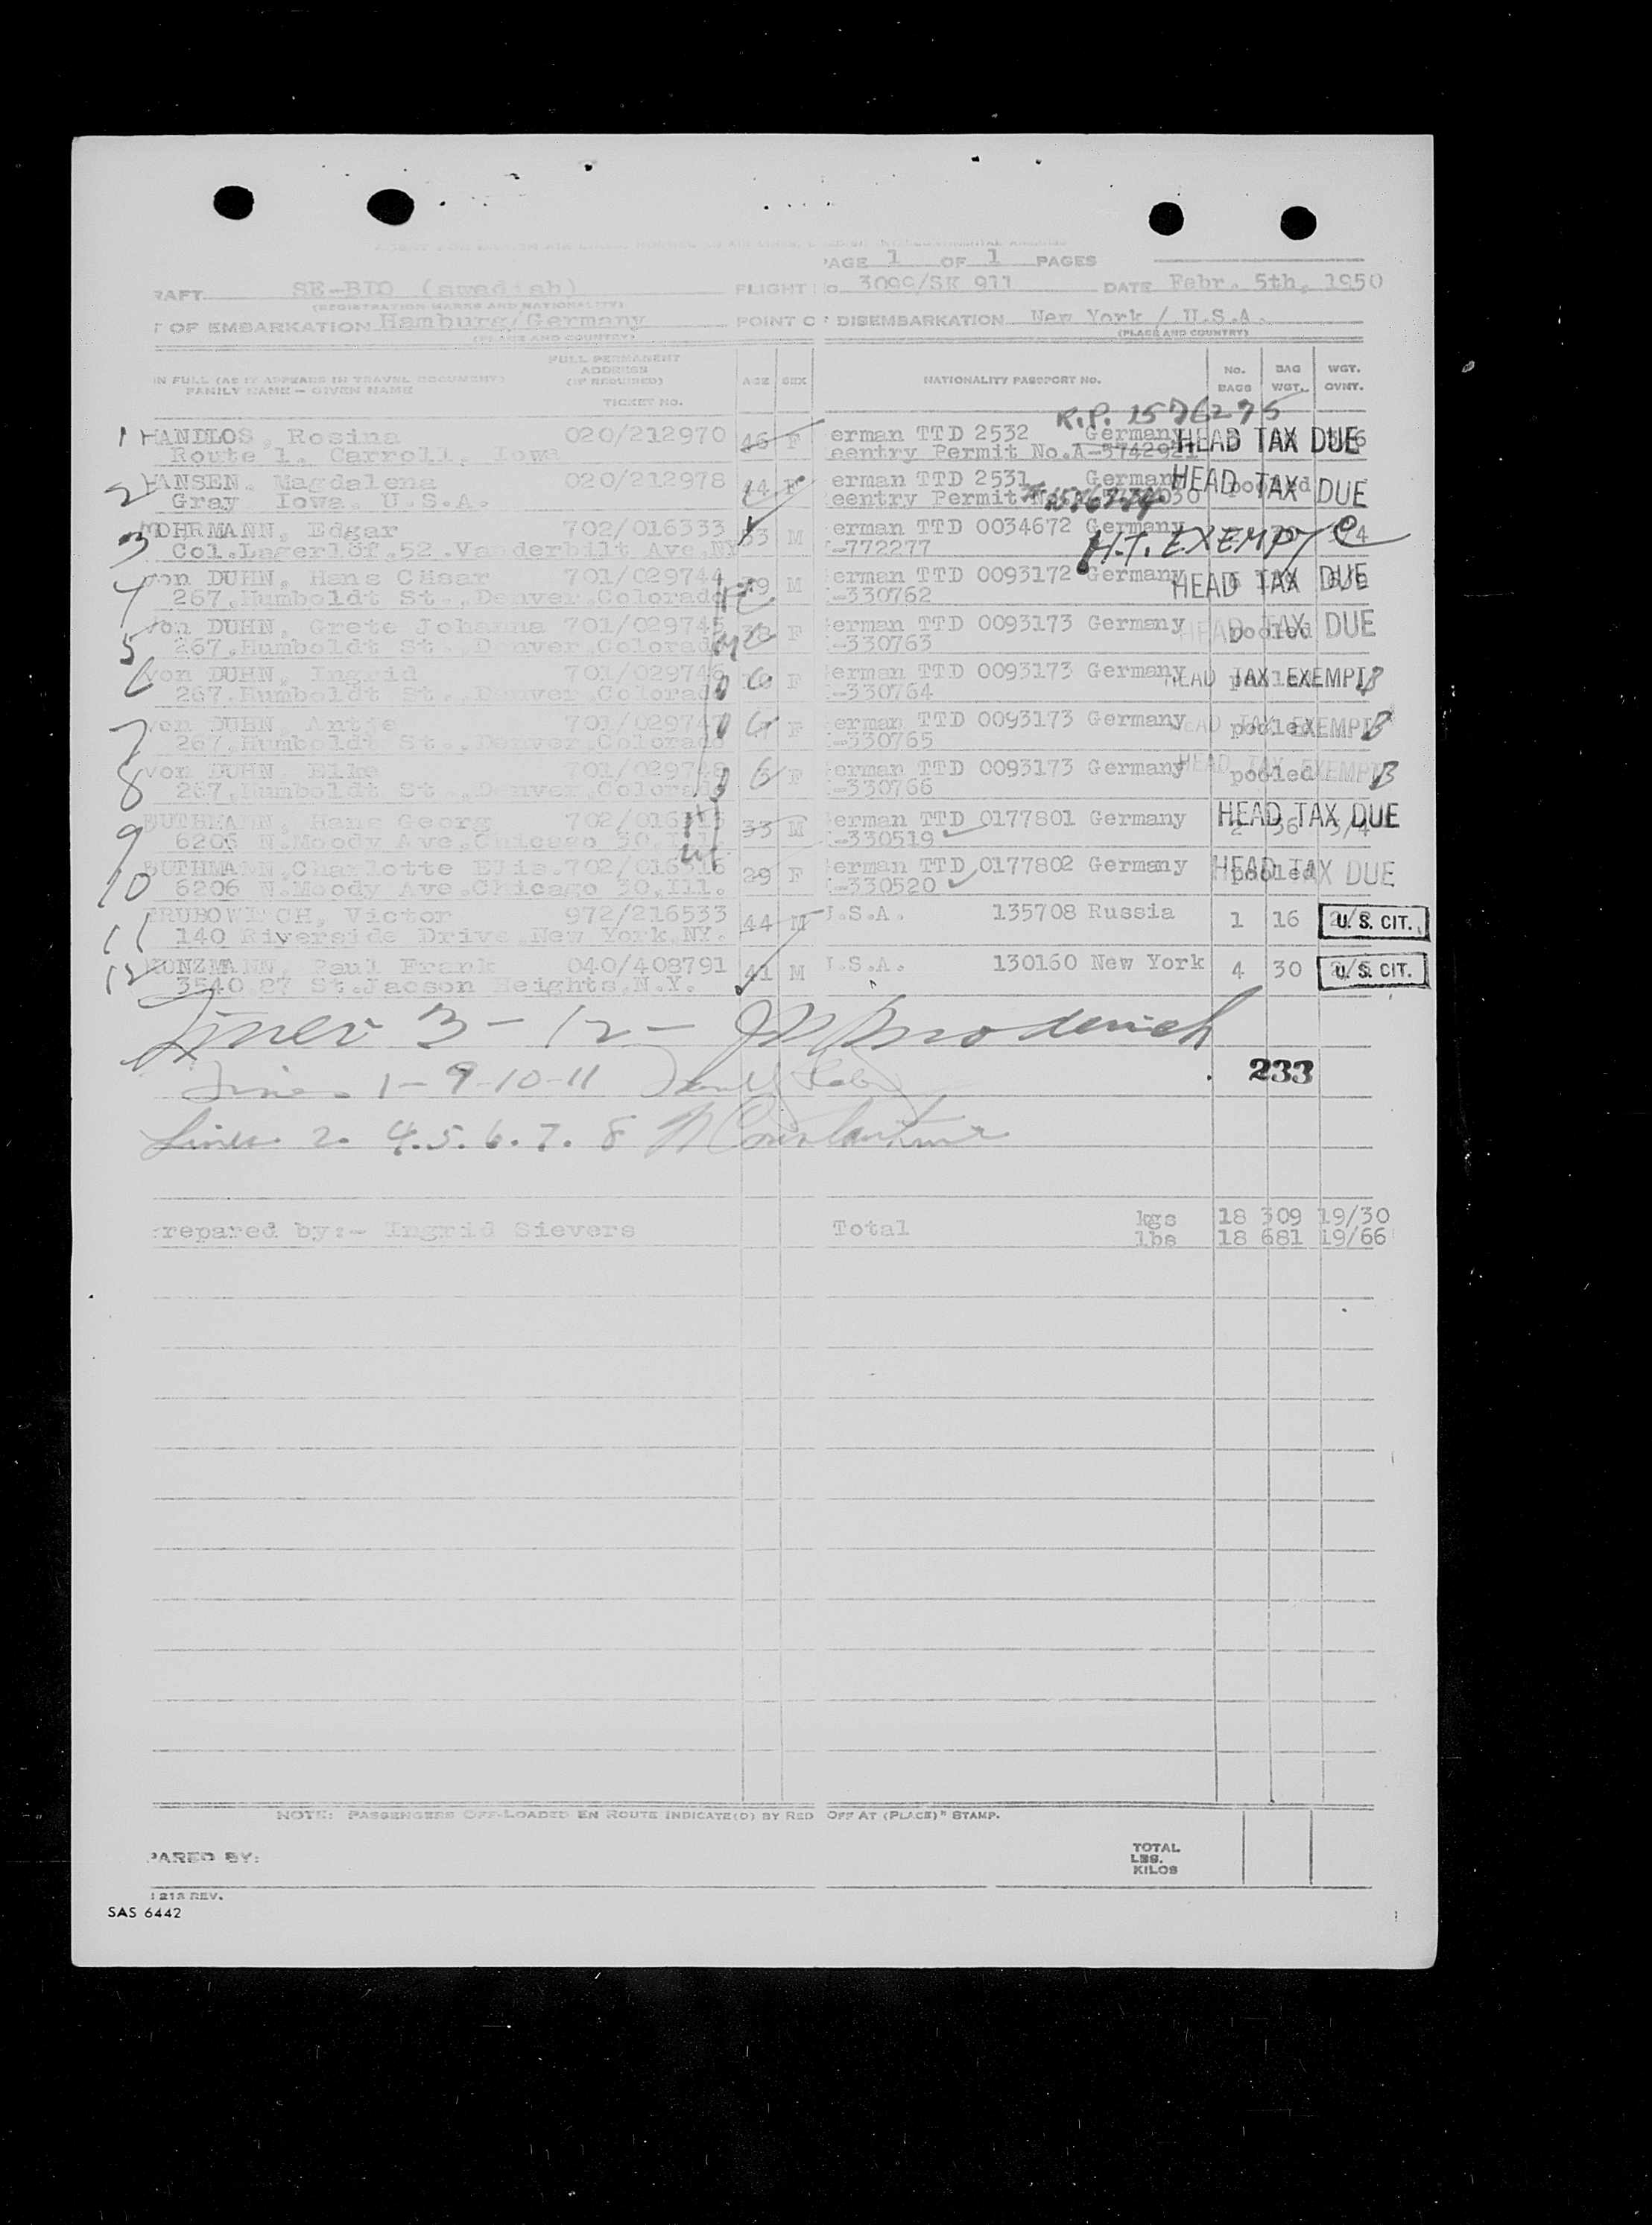 PAGE 1 OF 1 PAGES
RAFT SE-BDO (swedish) FLIGHT No. 3099/SK 911 DATE Febr. 5th, 1950
(REGISTRATION MARKS AND NATIONALITY)
T OF EMBARKATION Hamburg/Germany POINT OF DISEMBARKATION New York / U.S.A.
(PLACE AND COUNTRY) (PLACE AND COUNTRY)
IN FULL (AS IT APPEARS IN TRAVEL DOCUMENT) FULL PERMANENT ADDRESS (IF REQUIRED) AGE SEX NATIONALITY PASSPORT No. No. BAGS BAG WGT. WGT. OVNT.
FAMILY NAME — GIVEN NAME TICKET NO.
R.P. 1576275
1 HANDLOS, Rosina 020/212970 46 F erman TTD 2532 Germany HEAD TAX DUE
Route 1, Carroll, Iowa eentry Permit No.A-5742921
2 HANSEN, Magdalena 020/212978 44 F erman TTD 2531 Germany pooled HEAD TAX DUE
Gray Iowa, U.S.A. eentry Permit
3 MOHRMANN, Edgar 702/016333 53 M erman TTD 0034672 Germany
Col.Lagerlöf,52.Vanderbilt Ave,NY -772277 H.T. EXEMPT
4 von DUHN, Hans Cäsar 701/029744 39 M erman TTD 0093172 Germany HEAD TAX DUE
267,Humboldt St.,Denver,Colorado -330762
5 von DUHN, Grete Johanna 701/029745 38 F erman TTD 0093173 Germany pooled HEAD TAX DUE
267,Humboldt St.,Denver,Colorado -330763
6 von DUHN, Ingrid 701/029746 F erman TTD 0093173 Germany pooled HEAD TAX EXEMPT B
267,Humboldt St.,Denver,Colorado -330764
7 von DUHN, Antje 701/029747 F erman TTD 0093173 Germany pooled HEAD TAX EXEMPT B
267,Humboldt St.,Denver,Colorado -330765
8 von DUHN, Elke 701/029748 F erman TTD 0093173 Germany pooled HEAD TAX EXEMPT B
267,Humboldt St.,Denver,Colorado -330766
9 BUTHMANN, Hans Georg 33 M erman TTD 0177801 Germany 2 36 3/4 HEAD TAX DUE
6206 N.Moody Ave.Chicago 30,Ill. -330519
10 BUTHMANN,Charlotte Elis.702/016316 29 F erman TTD 0177802 Germany pooled HEAD TAX DUE
6206 N.Moody Ave.Chicago 30,Ill. -330520
11 TRUBOWITCH, Victor 972/216533 44 M U.S.A. 135708 Russia 1 16 U. S. CIT.
140 Riverside Drive,New York,NY.
12 KUNZMANN, Paul Frank 040/408791 41 M U.S.A. 130160 New York 4 30 U. S. CIT.
3540.87 St.Jacson Heights,N.Y.
Lines 3 - 12 - Broderick
233
Lines 1-9-10-11
Lines 2. 4.5.6.7.8 Constantine
repared by:- Ingrid Sievers Total kgs 18 309 19/30
lbs 18 681 19/66
NOTE: PASSENGERS OFF-LOADED EN ROUTE INDICATE(D) BY RED OFF AT (PLACE)" STAMP.
PARED BY: TOTAL LBS. KILOS
1218 REV.
SAS 6442